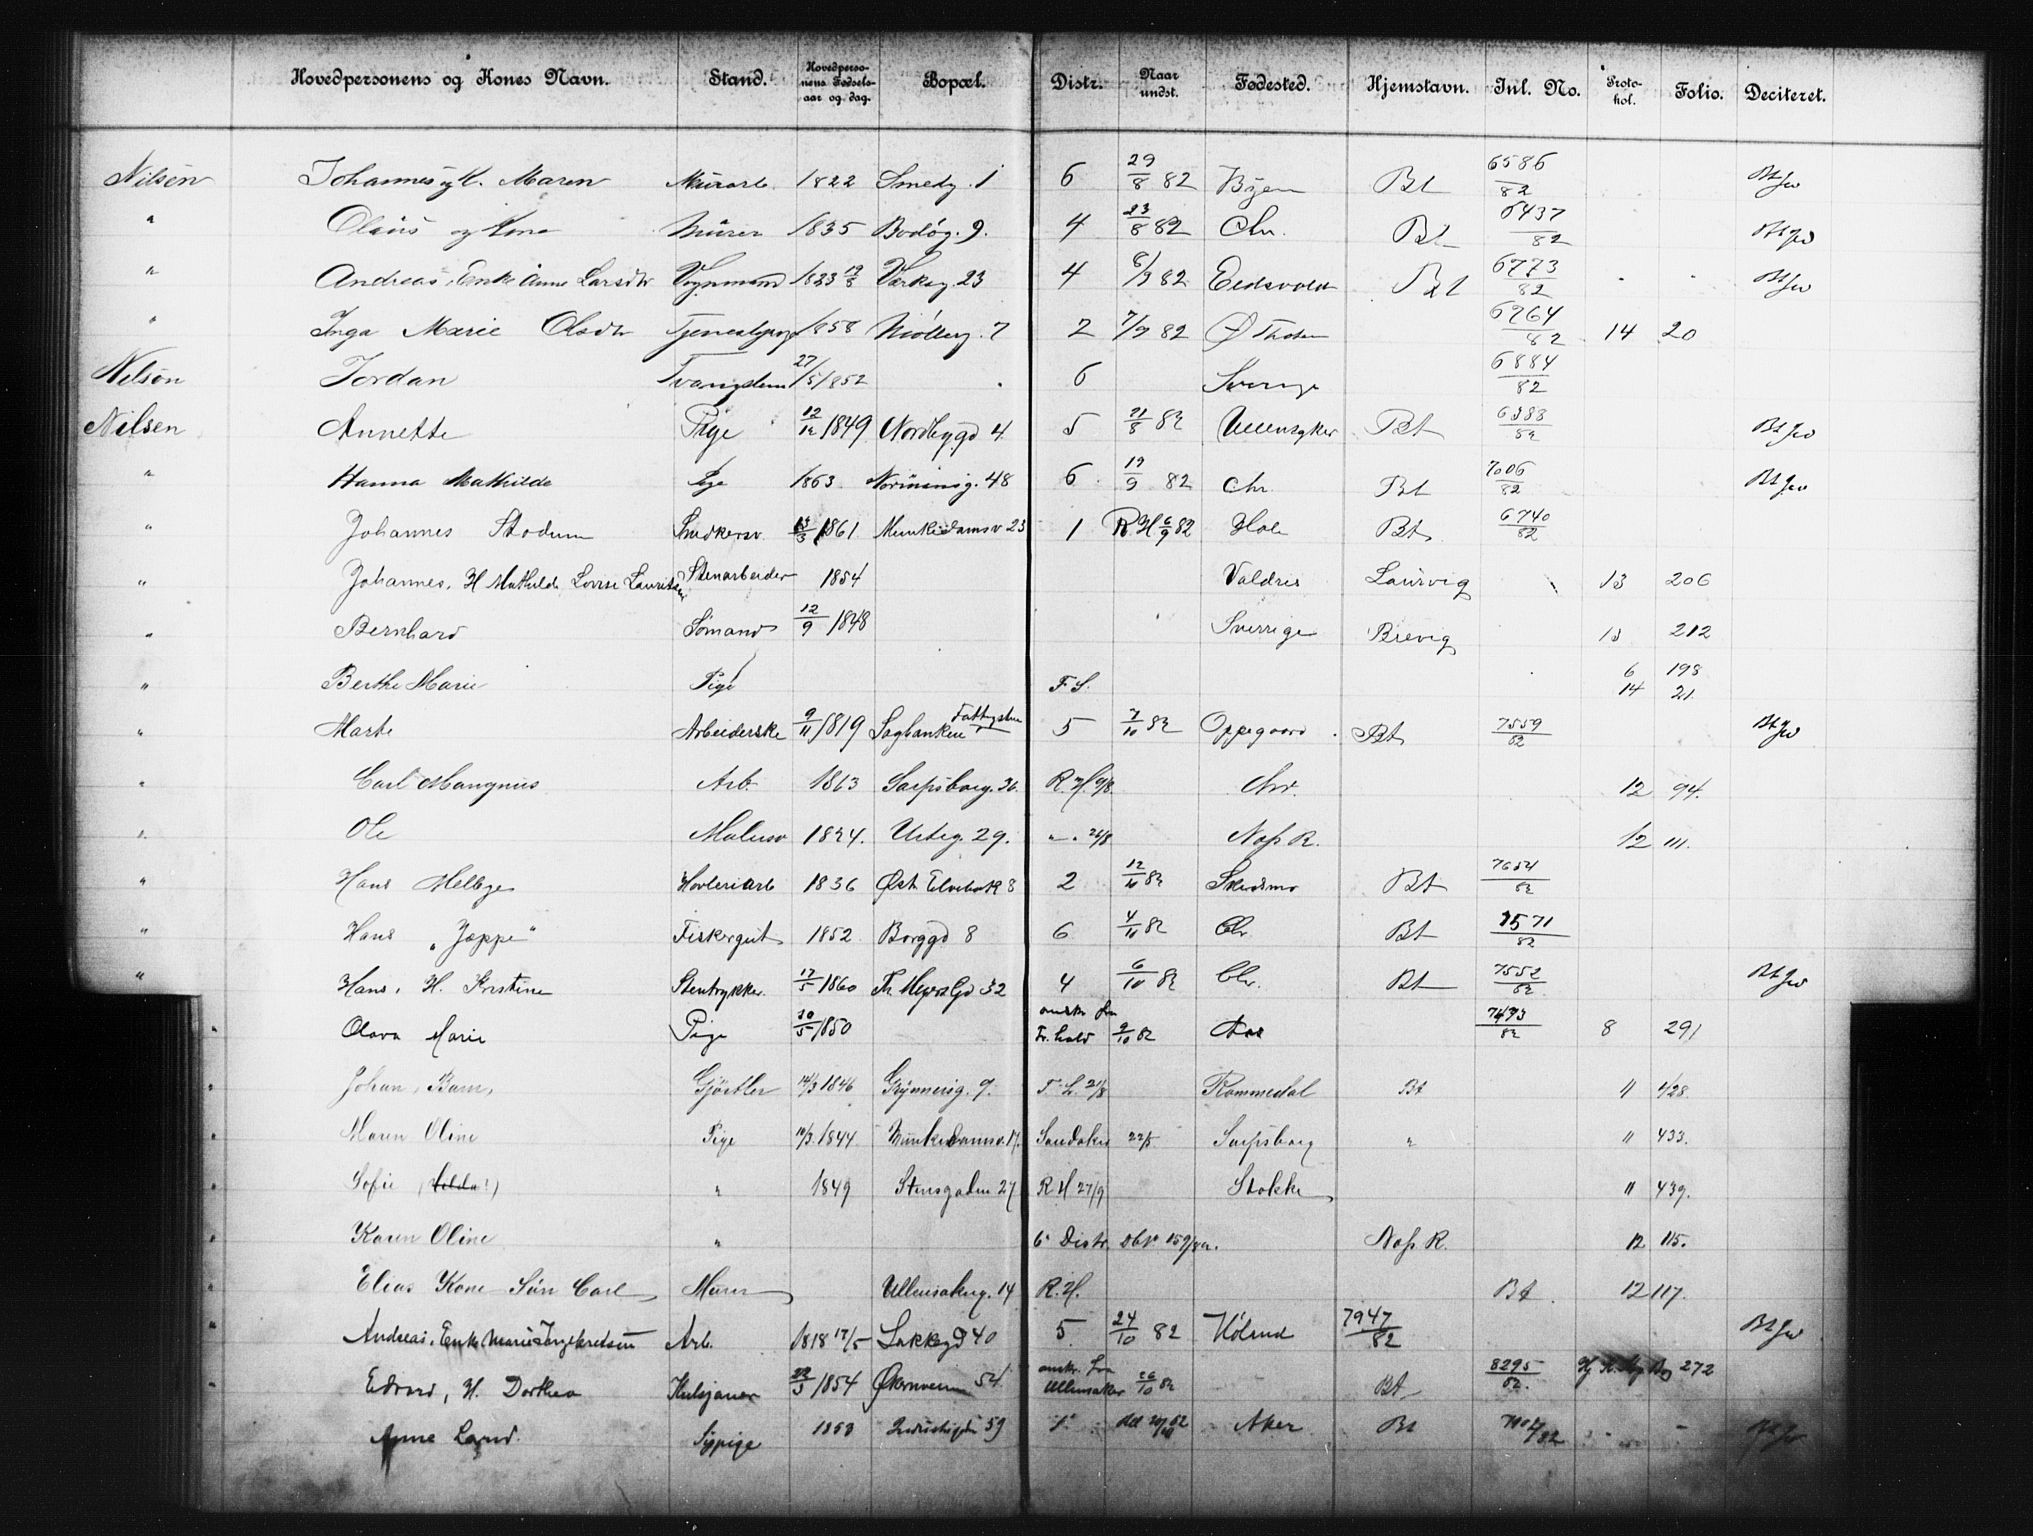 Hovedpersonens og Kones Navn. Stand. Hovedpersonens Fødselsaar og dag. Bopæl. Distr. Naar undst. Fødested. Hjemstavn. Inl. No. Protokol. Folio. Deciteret.
Nilsen Johannes og K. Maren Murarb. 1822 Smedg. 1 6 29/8 82 Byen Bt 6586/82 Bt Jw
" Olaus og Kone Murer 1835 Bodøg. 9. 4 23/8 82 Chr. Bt 6437/82 Bt Jw
" Andreas, Enke Anne Larsdtr Vognmand 1823 12/8 Verksg. 23 4 6/9 82 Eidsvold Bt 6773/82 Bt Jw
" Inga Marie Olsdtr 1858 Mølleg. 7 2 7/9 82 Ø Thoten 6764/82 14 20
Nilsøn Jordan 27/5 1852 6 Sverige 6884/82
Nilsen Annette Pige 12/12 1849 Nordbygd 4. 5 21/8 82 Ullensaker Bt 6383/82 Bt Jw
" Hanna Mathilde Pige 1863 48 6 19/9 82 Chr. Bt 7006/82 Bt Jw
" Johannes Stodum Snedkersv. 13/3 1861 Munkedamsv 23 1 R.H 6/9 82 Hole Bt 6740/82
" Johannes, H Mathilde Lovise Stenarbeider 1854 Valdres Laurvig 13 206
" Bernhard Sømand 12/9 1848 Sverrige Brevig 13 212
" Berthe Marie Pige F. S. 6 198
14 21
" Marte Arbeiderske 9/11 1819 Sagbanken 5 7/10 82 Oppegaard Bt 7559/82 Bt Jw
" Carl Mangnus Arb. 1863 Sarpsborg. 36. R. H. 9/8 Chr. 12 94.
" Ole Malersv 1824. Urteg. 29. " " 24/8 Næs R. 12 111.
" Hans Melbye Høvleriarb 1836 Øst Elvebak 8 2 12/10 82 Skedsmo Bt 7654/82
" Hans "Jeppe" Fiskergut 1852 Borggd 8 6 4/11 82 Chr. Bt 7571/82
" Hans, H. Kristine Stentrykker. 17/5 1860 Th Meyers Gd 32 4 6/10 82 Chr. Bt 7552/82 Bt Jw
" Olava Marie Pige 30/5 1850 ansk. fra Fr.hald 9/10 82 7493/82 8 291
" Johan, Barn, Gjørtler 14/3 1846 Grünnersg. 9. F. L. 21/8 Rommedal Bt 11 428
" Maren Oline Pige 10/3 1844 Munkedamsv. 17. Sandaker 22/8 Sarpsborg " 11 433.
" Sofie " 1849 Stensgaden 27 R H 27/9 Stokke 11 439.
" Karen Oline " 6' Distr. Næs R. 12 115.
" Elias Kone Søn Carl Murer Ullensakerg. 14 R. H. Bt 12 117.
" Andreas, Enke Marie Arb. 1818 17/5 Lakkegd 40 5 24/10 82 Høland 7947/82 Bt Jw
" Edvard, H. Dorthea 1854 54 ansk. fra Ullensaker 26/10 82 Bt 8295/82 272
Anne Sypige 1858 59 1' Aker Bt Bt Jw